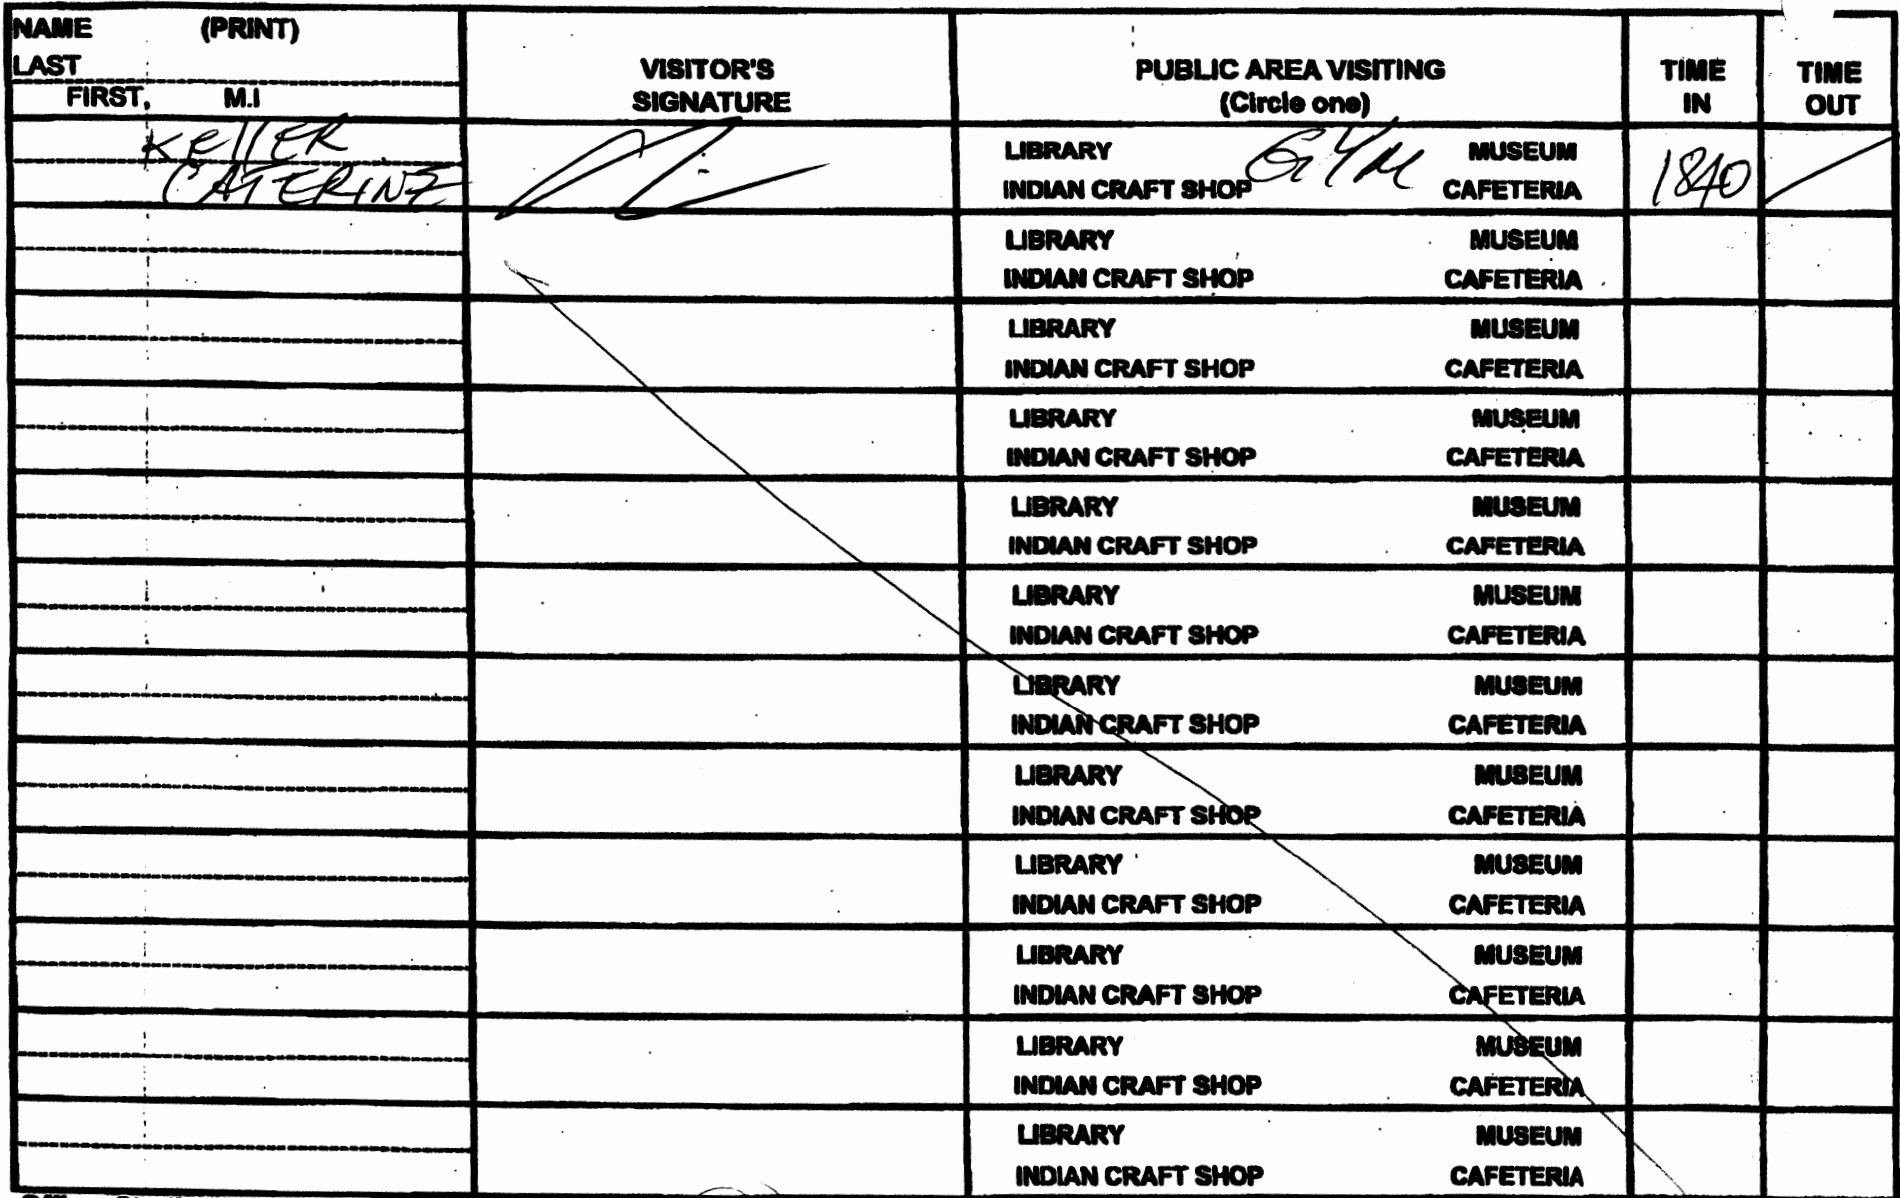 NAME (PRINT)
LAST
FIRST, M.I
VISITOR'S
SIGNATURE
PUBLIC AREA VISITING
(Circle one)
TIME
IN
TIME
OUT
KEllER
CATERINE
LIBRARY GYM MUSEUM
INDIAN CRAFT SHOP CAFETERIA
1840
LIBRARY MUSEUM
INDIAN CRAFT SHOP CAFETERIA
LIBRARY MUSEUM
INDIAN CRAFT SHOP CAFETERIA
LIBRARY MUSEUM
INDIAN CRAFT SHOP CAFETERIA
LIBRARY MUSEUM
INDIAN CRAFT SHOP CAFETERIA
LIBRARY MUSEUM
INDIAN CRAFT SHOP CAFETERIA
LIBRARY MUSEUM
INDIAN CRAFT SHOP CAFETERIA
LIBRARY MUSEUM
INDIAN CRAFT SHOP CAFETERIA
LIBRARY MUSEUM
INDIAN CRAFT SHOP CAFETERIA
LIBRARY MUSEUM
INDIAN CRAFT SHOP CAFETERIA
LIBRARY MUSEUM
INDIAN CRAFT SHOP CAFETERIA
LIBRARY MUSEUM
INDIAN CRAFT SHOP CAFETERIA